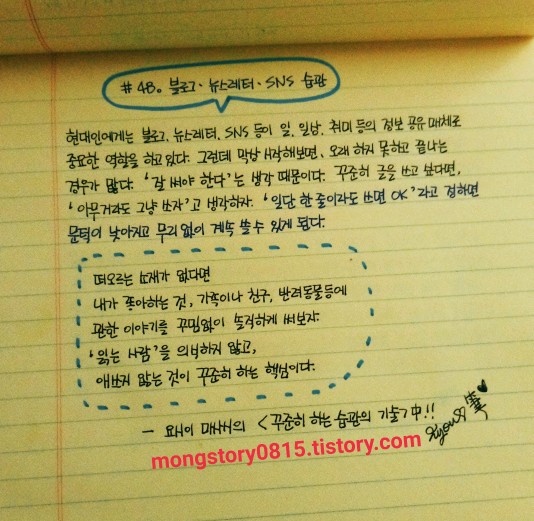 #48. 블로그 · 뉴스레터 · SNS 습관
현대인에게는 블로그, 뉴스레터, SNS 등이 일, 일상, 취미 등의 정보 공유 매체로
중요한 역할을 하고 있다. 그런데 막상 시작해보면, 오래 하지 못하고 끝나는
경우가 많다. '잘 써야 한다'는 생각 때문이다. 꾸준히 글을 쓰고 싶다면,
'아무거라도 그냥 쓰자'고 생각하자. '일단 한 줄이라도 쓰면 OK'라고 정하면
문턱이 낮아지고 무리 없이 계속 쓸 수 있게 된다.
떠오르는 소재가 없다면
내가 좋아하는 것, 가족이나 친구, 반려동물등에
관한 이야기를 꾸밈없이 솔직하게 써보자.
'읽는 사람'을 의식하지 않고,
애쓰지 않는 것이 꾸준히 하는 핵심이다.
- 요시이 마사시의 <꾸준히 하는 습관의 기술> 中!!
mongstory0815.tistory.com